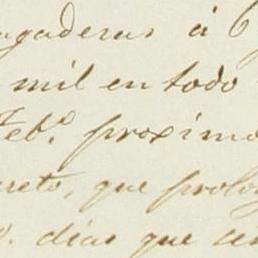 gaderas á 6
mil en todo
Feb.º proximo
creto, que prolo
dias que